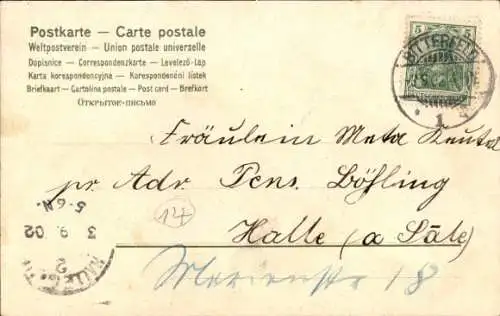 Postkarte — Carte postale
Weltpostverein — Union postale universelle
Dopisnice — Correspondenzkarte — Levelező-Lap
Karta korespondencyjna — Korespondenční listek
Briefkaart — Cartolina postale — Post card — Brefkort
Открытое-письмо
5 5
BITTERFELD
1
Fräulein Meta
pr. Adr. Pens. Böhling
14
Halle (a Sale)
Marienstr 18
5-6N.
3 9 02
2